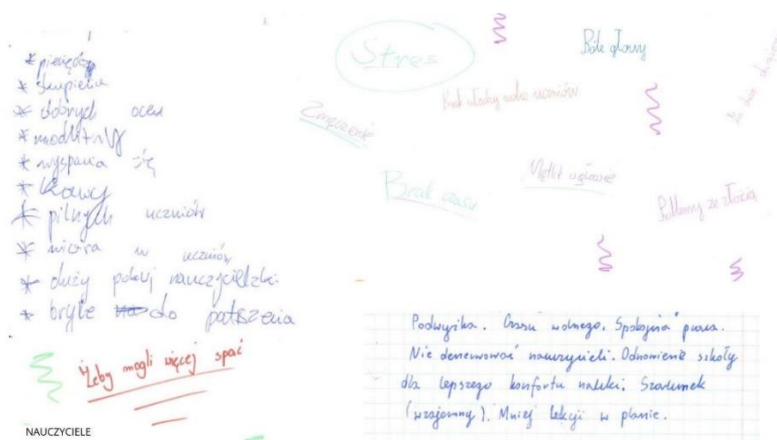 * pieniędzy
* skupienia
* dobrych ocen
* modlitwy
* wyspania się
* kawy
* pilnych uczniów
* wiara w uczniów
* duży pokuj nauczycielski
* bryle do patszenia
Żeby mogli więcej spać
NAUCZYCIELE
Stres
Bóle głowy
Brak władzy uczniów
Zmęczenie
Mętlik w głowie
Brak czasu
Problemy ze złością
Podwyżka. Czasu wolnego. Spokojna praca.
Nie denerwować nauczycieli. Odnowienie szkoły
dla lepszego konfortu nauki. Szacunek
(wzajemny). Mniej lekcji w planie.